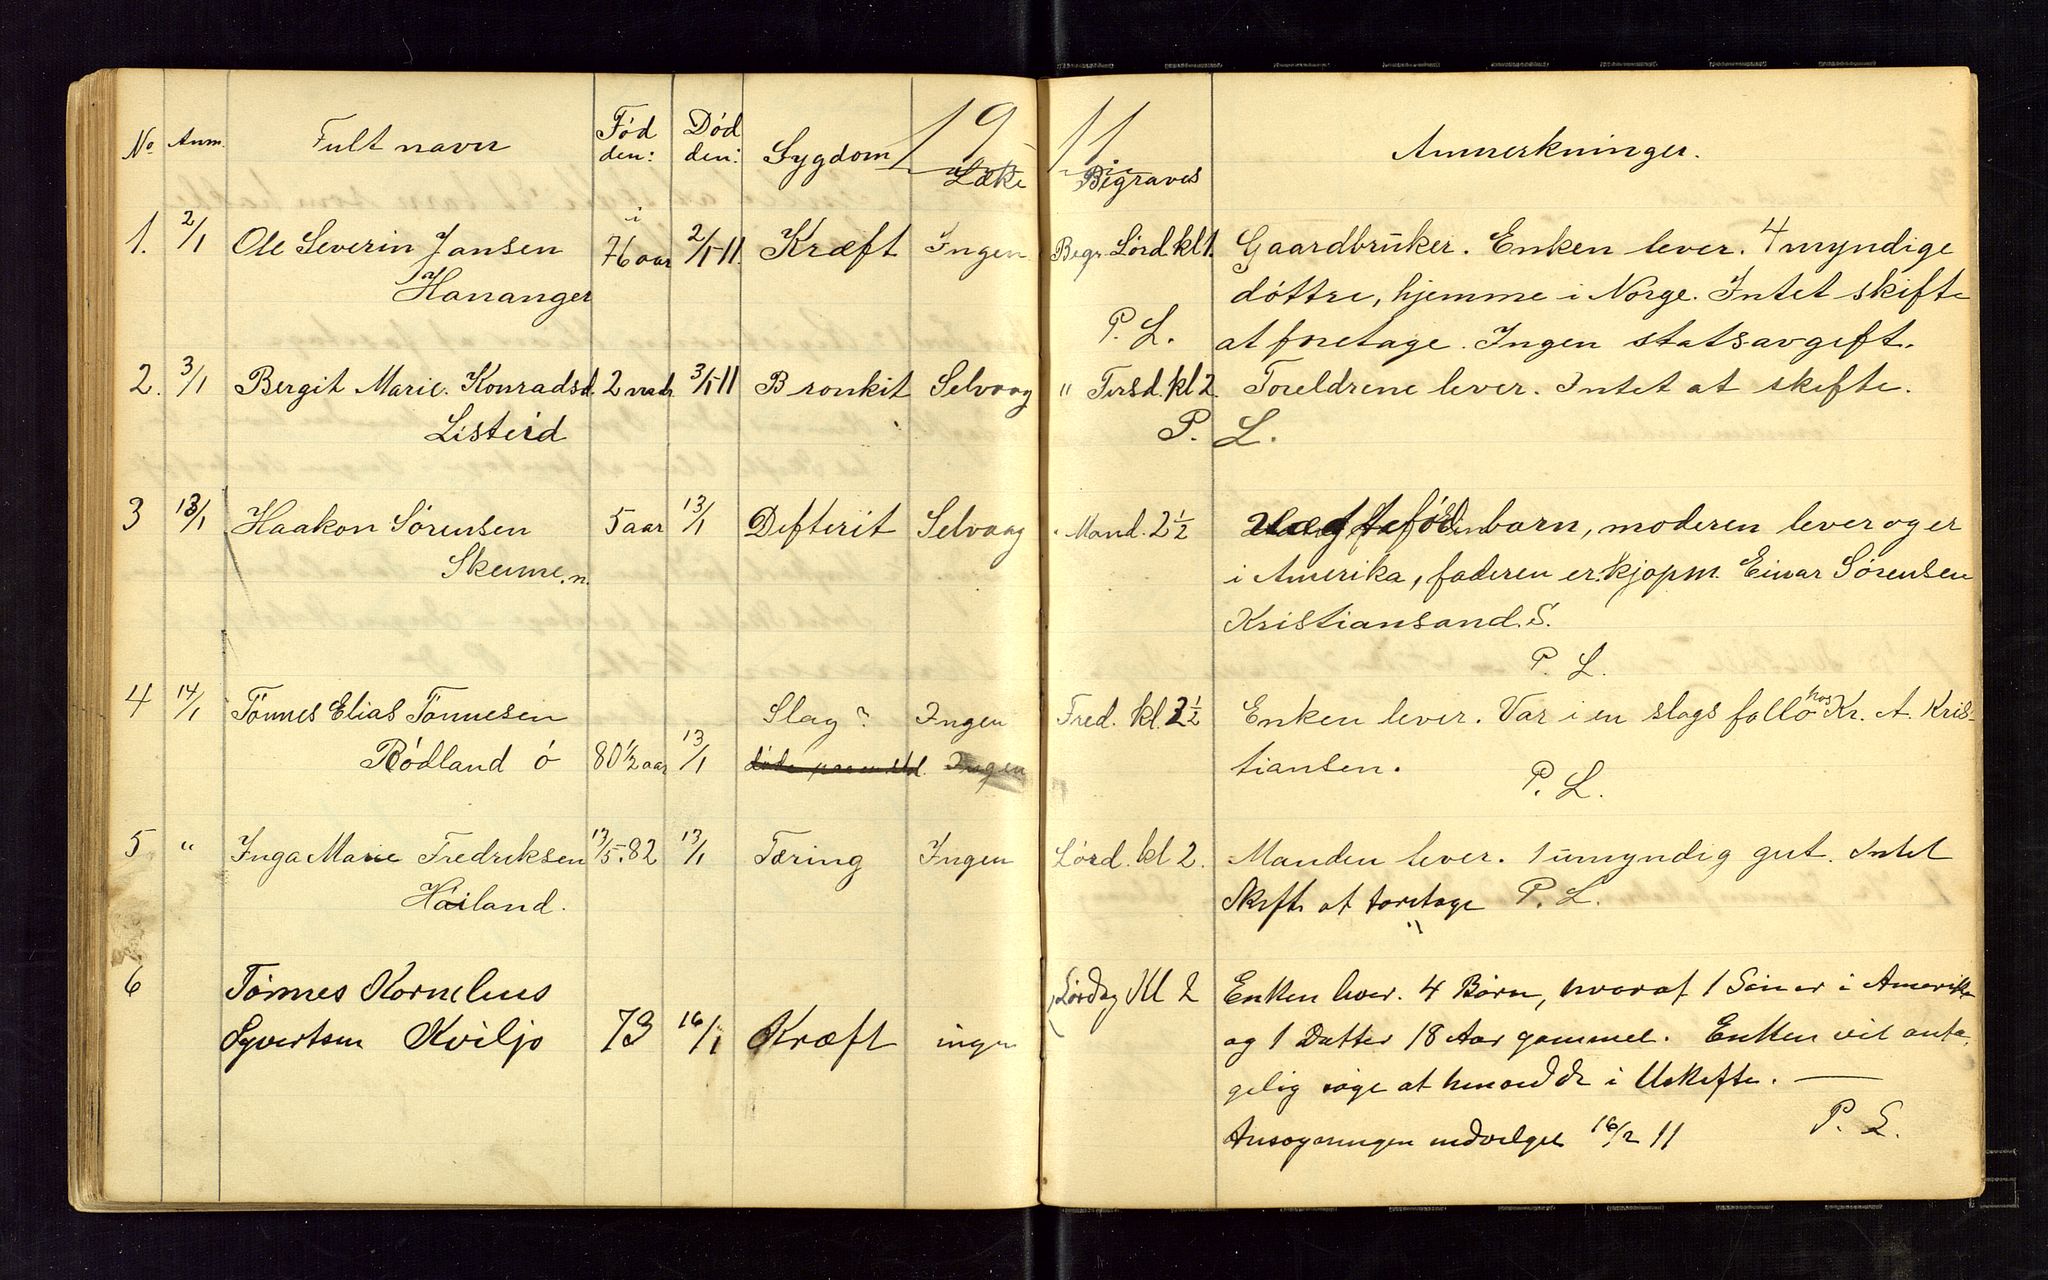 19 11
No Anm. Fult navn Fød den: Død den: Sygdom Læke Begraves Anmerkninger.
1. 2/1 Ole Severin Jansen i 76 aar 2/1-11. Kræft Ingen Begr. Lørd kl 1. Gaardbruker. Enken lever. 4 myndige
Hananger døttre, hjemme i Norge. Intet skifte
P. L. at foretage. Ingen statsavgift.
2. 3/1 Bergit Marie Konradsd. 2 mdr. 3/1-11 Bronkit Selvaag " Tirsd. kl 2. Foreldrene lever. Intet at skifte.
Listeid P. L.
3 13/1 Haakon Sørensen 5 aar 13/1 Defterit Selvaag Mand. 2½ barn, moderen lever og er
Skeime. n. i Amerika, faderen er kjøpm. Einar Sørensen
Kristiansand. S.
P. L.
4 14/1 Tönnes Elias Tönnesen Slag? Ingen Fred. kl. 2½ Enken lever. Var i en slags follo hos Kr. A. Kris-
Rødland ø 80½ aar 13/1 Ingen tiansen. P. L.
5 " Inga Marie Fredriksen 13/5.82 13/1 Tæring Ingen Lørd. kl 2. Manden lever. 1 umyndig gut. Intet
Háiland. Skifte at foretage P. L.
6 Tønnes Kornelius Lørdag Kl 2 Enken lever. 4 Børn, hvoraf 1 Søn er i Amerika
Syvertsen Kviljo 73 16/1 Kræft ingen og 1 Datter 18 Aar gammel. Enken vil anta-
gelig søge at hensidde i Uskifte. —
Ansøgningen indvilget 16/2 11 P. L.